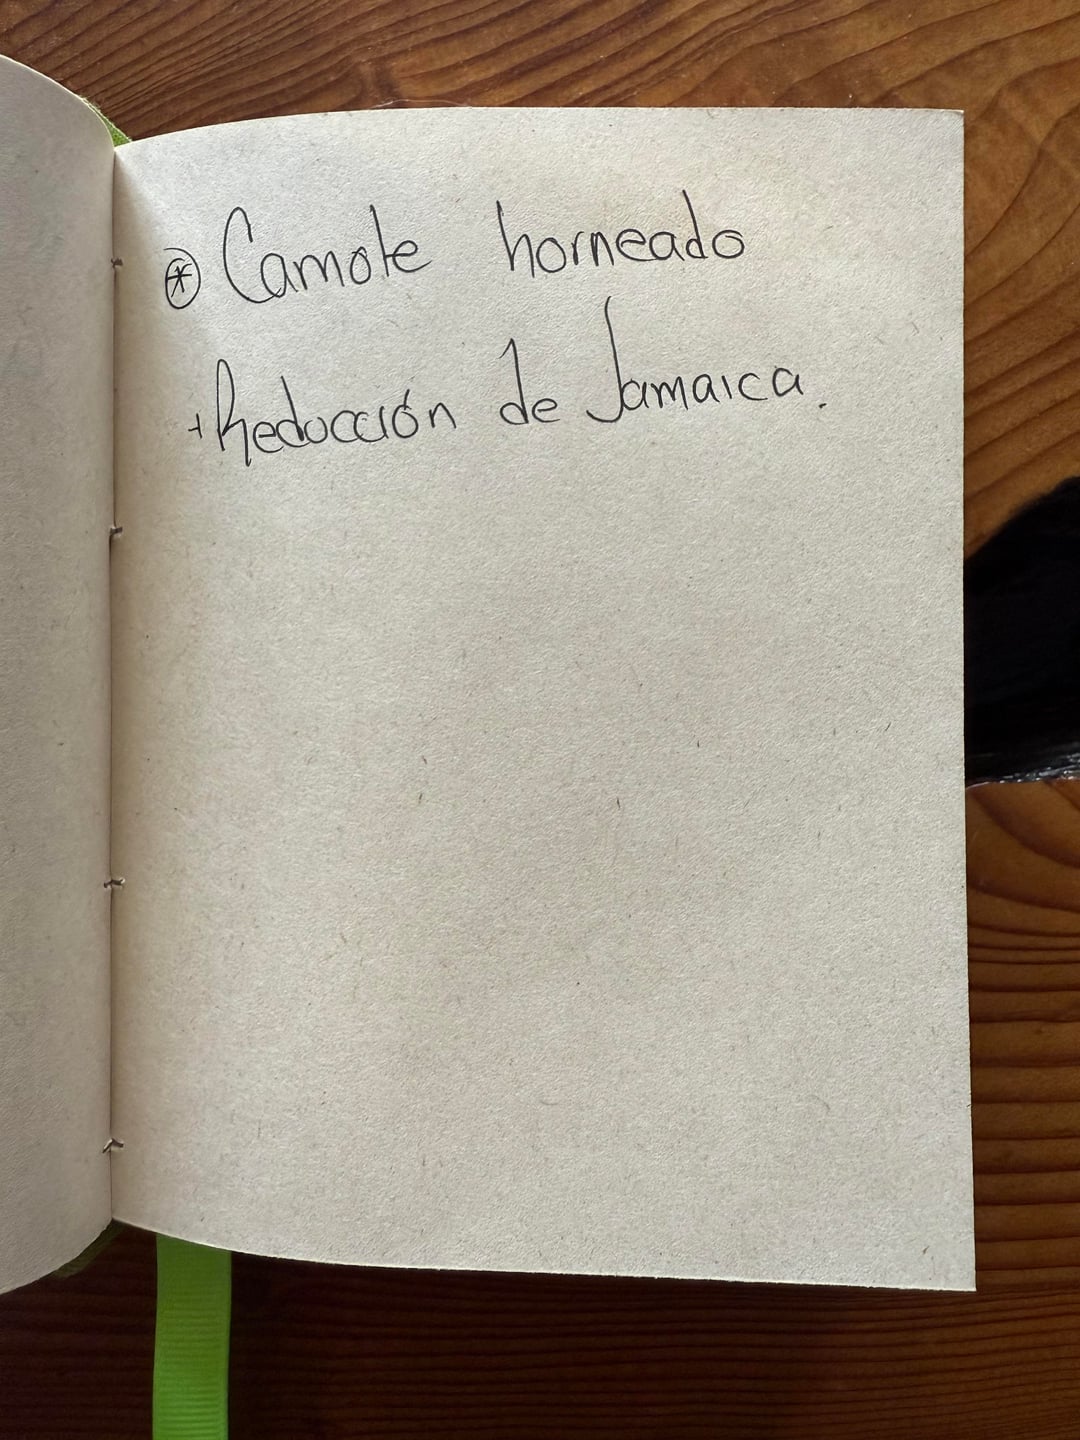 ⊛ Camote horneado
+ Reducción de Jamaica.